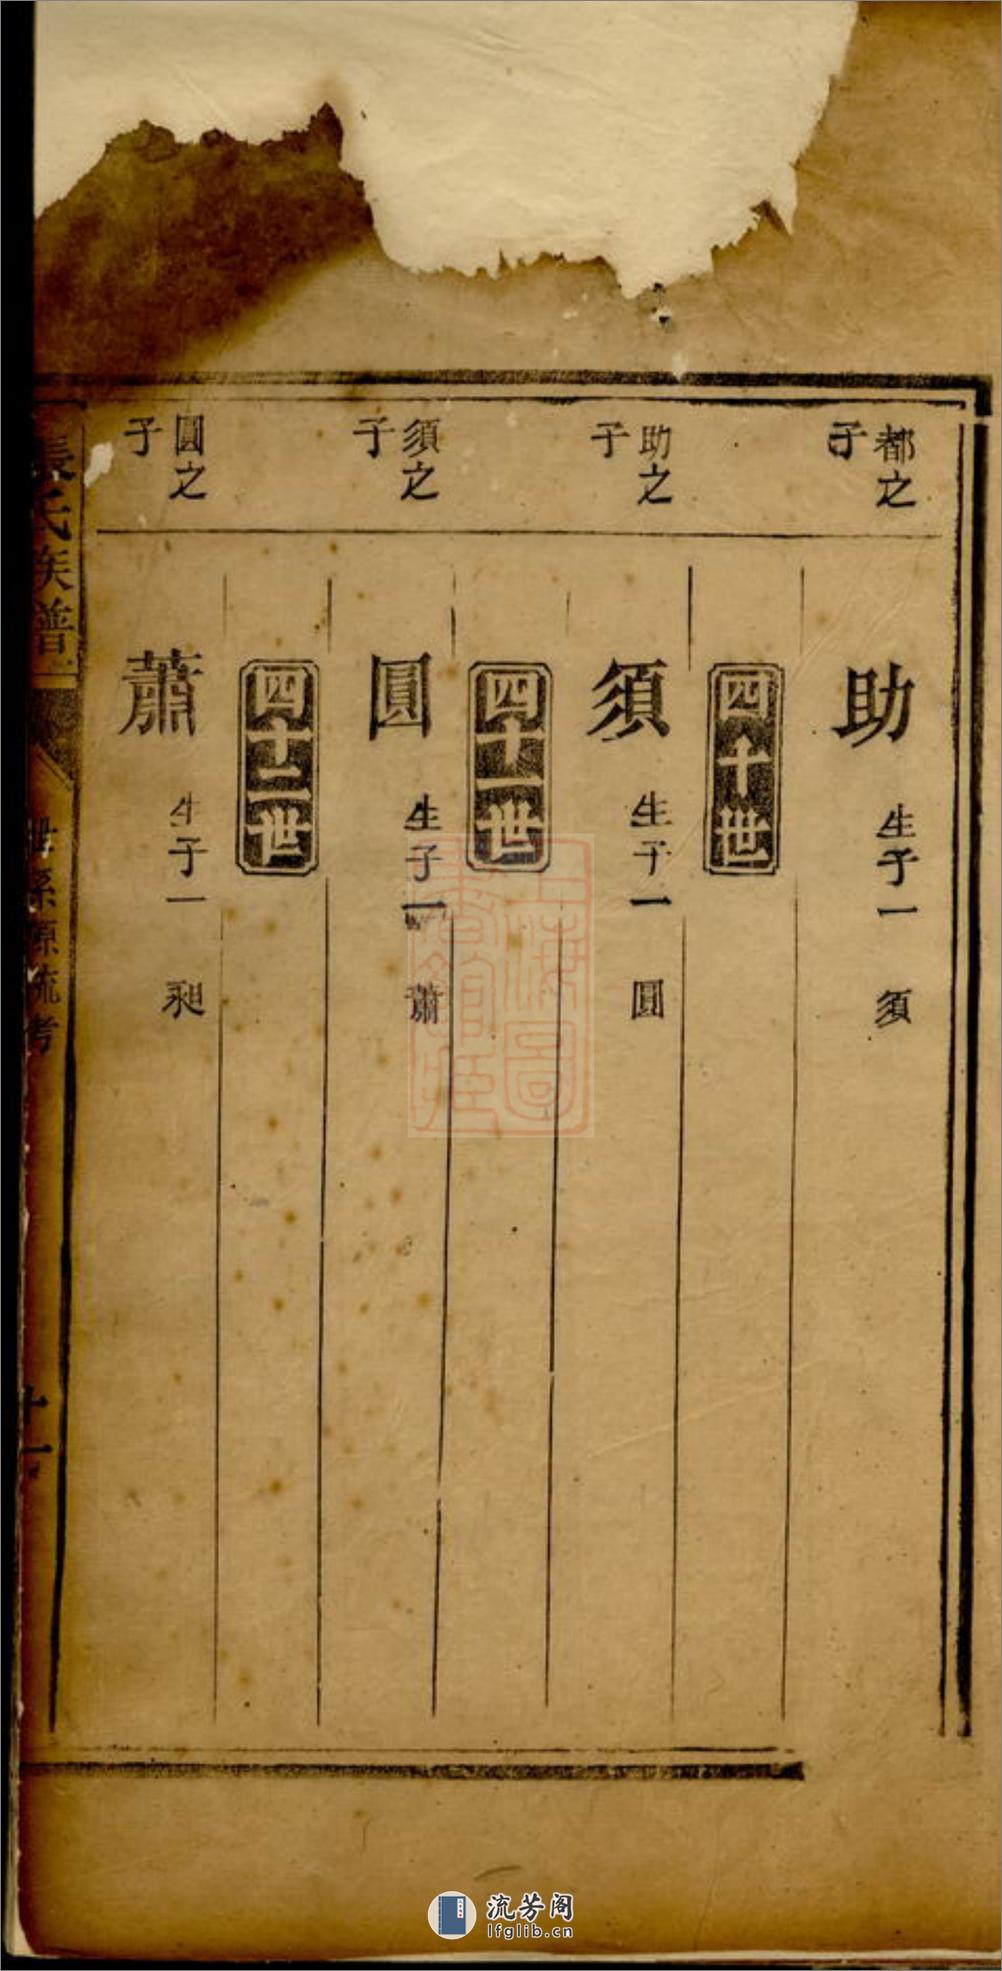 都之子
助 生子一 須
四十世
助之子
須 生子一 圓
四十一世
須之子
圓 生子一 蕭
四十二世
圓之子
蕭 生子一
張氏族譜
世系源流考
十一
上海圖書館藏
流芳阁
lfglib.cn